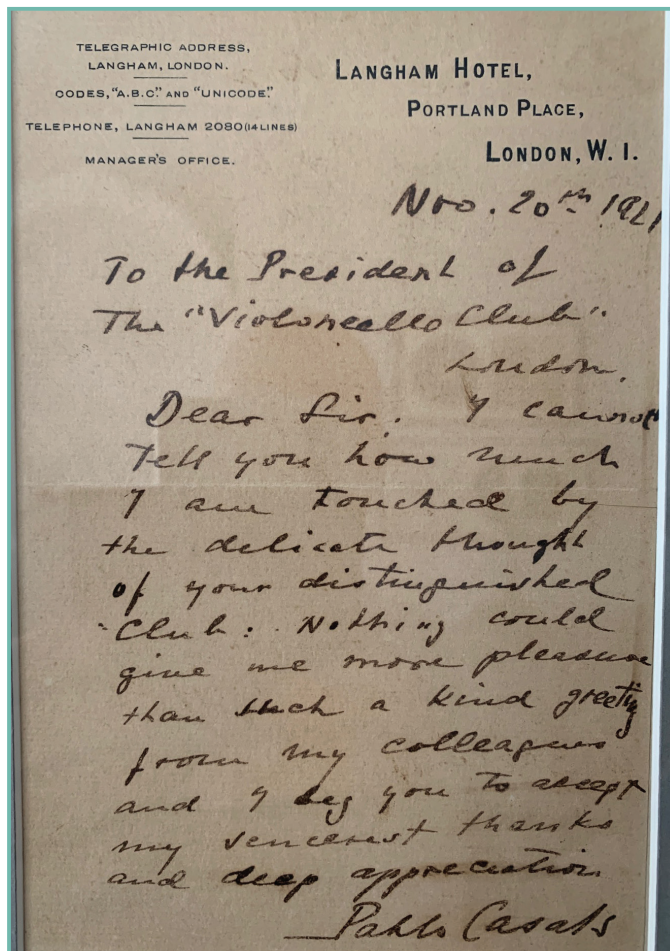 TELEGRAPHIC ADDRESS,
LANGHAM, LONDON.
CODES, "A.B.C." AND "UNICODE."
TELEPHONE, LANGHAM 2080 (14 LINES)
MANAGER'S OFFICE.
LANGHAM HOTEL,
PORTLAND PLACE,
LONDON, W. 1.
Nov. 20th 1921
To the President of
The "Violoncello Club".
London.
Dear Sir. I cannot
Tell you how much
I am touched by
the delicate thought
of your distinguished
Club: Nothing could
give me more pleasure
than such a kind greeting
from my colleagues
and I beg you to accept
my sencerest thanks
and deep appreciation
Pablo Casals